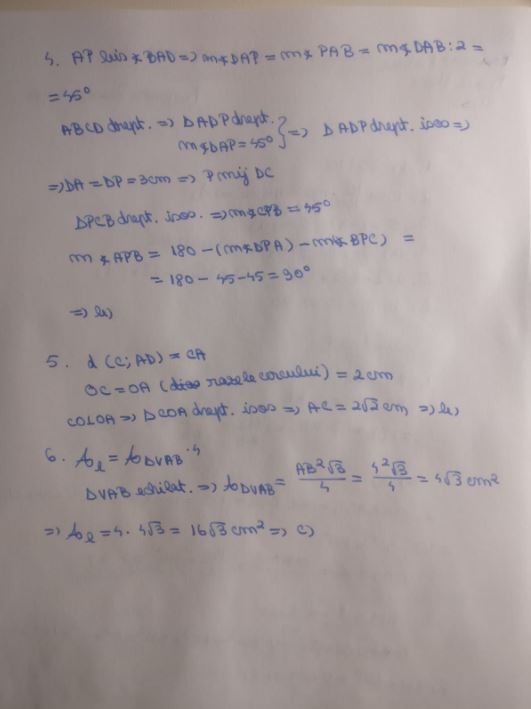 4. AP bis ∢ BAD => m∢DAP = m∢ PAB = m∢ DAB : 2 =
= 45°
ABCD drept. => ΔADP drept.
m∢DAP = 45° } => Δ ADP drept. isos =>
=> DA = DP = 3cm => P mij DC
ΔPCB drept. isos. => m∢CPB = 45°
m ∢ APB = 180 - (m∢DPA) - m∢ BPC) =
= 180 - 45 - 45 = 90°
=> b)
5. d (C; AD) = CA
OC = OA (razele cercului) = 2 cm
CO⊥OA => ΔCOA drept. isos => AC = 2√2 cm => b)
6. Aℓ = AΔVAB · 4
ΔVAB echilat. => AΔVAB = AB²√3/4 = 4²√3/4 = 4√3 cm²
=> Aℓ = 4 · 4√3 = 16√3 cm² => c)